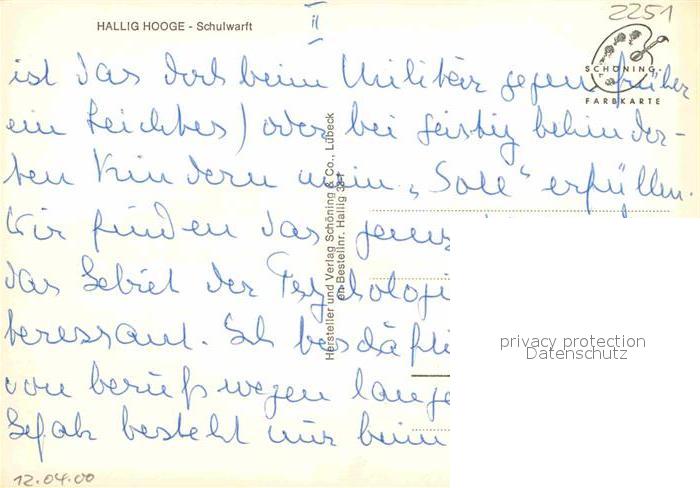 2251
HALLIG HOOGE - Schulwarft
II
SCHÖNING
FARBKARTE
ist das dort beim Militär gegen früher
ein Leichtes) oder bei geistig behinder-
ten Kindern mein „Soll“ erfüllen.
Wir finden das ganze
das Gebiet der Psychologi
teressant. Ich beschäfti
von berufs wegen lange
Gefahr besteht nur beim
Hersteller und Verlag Schöning & Co., Lübeck
Bestellnr. Hallig
privacy protection
Datenschutz
12.04.00